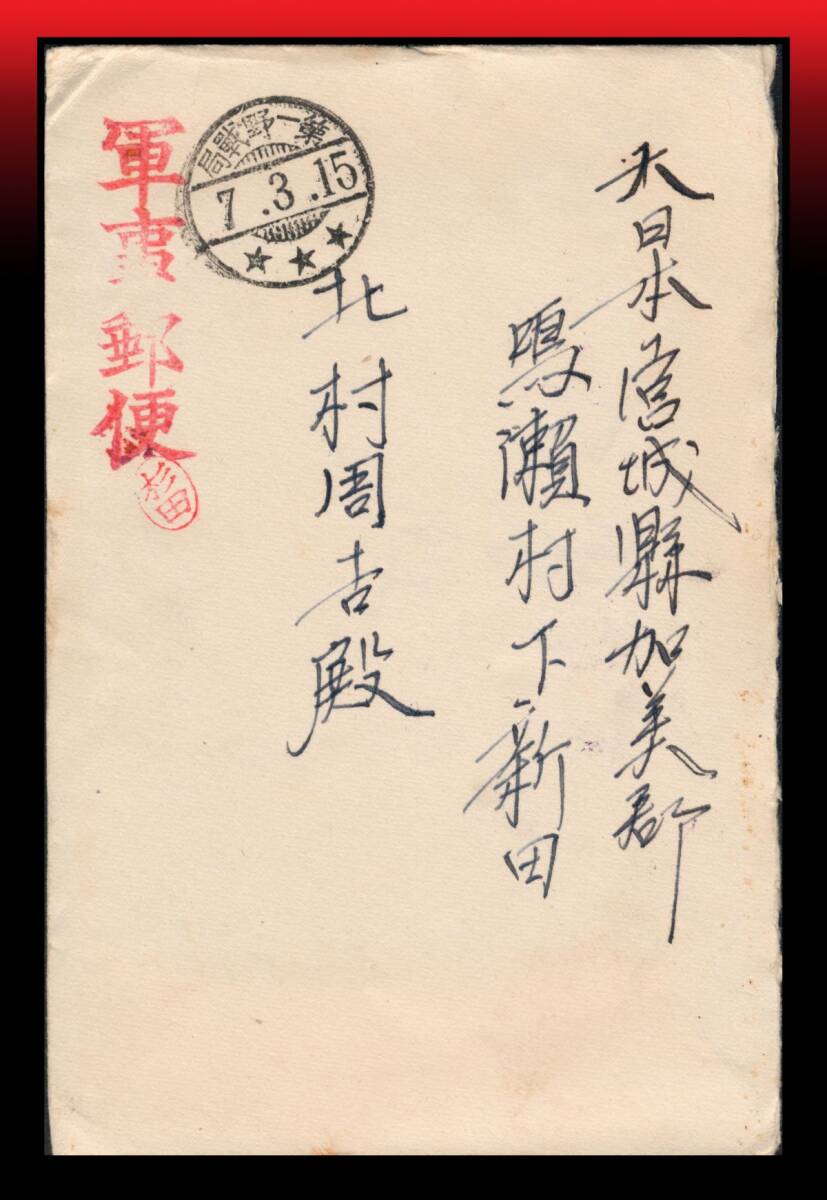 大日本宮城縣加美郡
鳴瀬村下新田
北村周吉殿
軍事郵便
杉田
第一野戰局
7.3.15